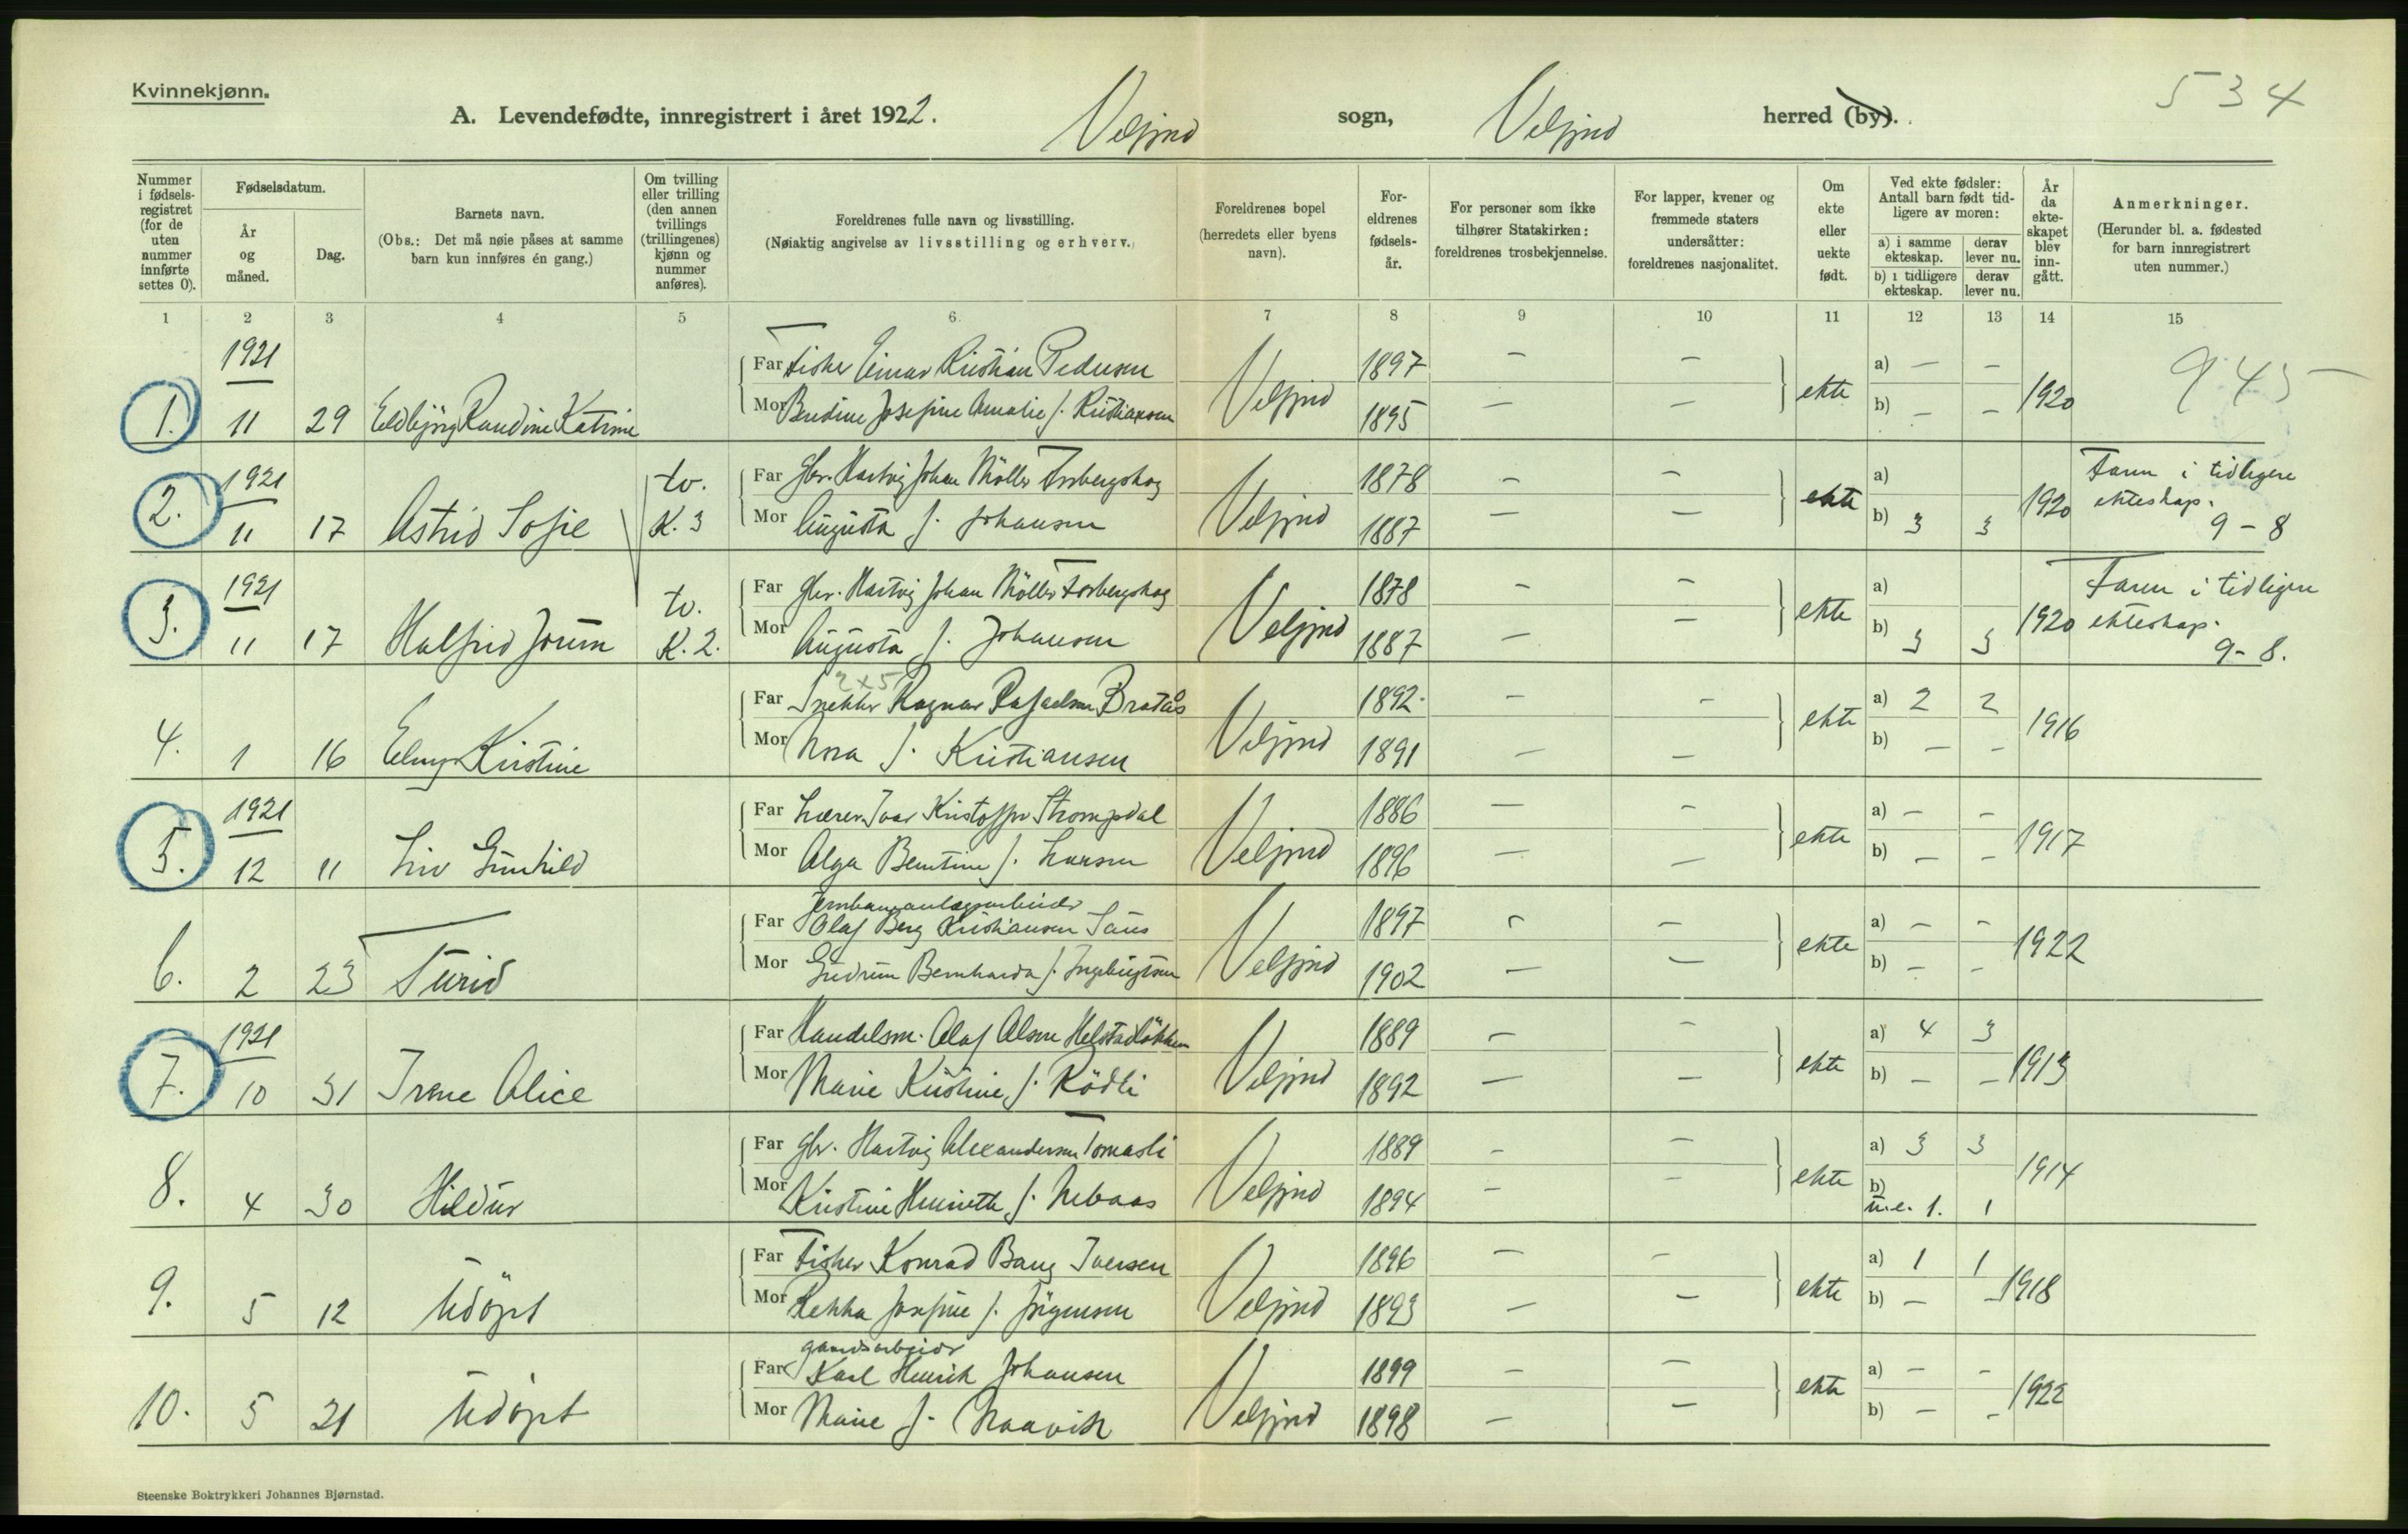 Kvinnekjønn.
534
A. Levendefødte, innregistrert i året 1922. Velfjord sogn, Velfjord herred (by).
Nummer i fødselsregistret (for de uten nummer innførte settes 0).
Fødselsdatum.
År og måned.
Dag.
Barnets navn.
(Obs.: Det må nøie påses at samme barn kun innføres én gang.)
Om tvilling eller trilling (den annen tvillings (trillingenes) kjønn og nummer anføres).
Foreldrenes fulle navn og livsstilling.
(Nøiaktig angivelse av livsstilling og erhverv.)
Foreldrenes bopel (herredets eller byens navn).
Foreldrenes fødselsår.
For personer som ikke tilhører Statskirken: foreldrenes trosbekjennelse.
For lapper, kvener og fremmede staters undersåtter: foreldrenes nasjonalitet.
Om ekte eller uekte født.
Ved ekte fødsler: Antall barn født tidligere av moren:
a) i samme ekteskap.
derav lever nu.
b) i tidligere ekteskap.
derav lever nu.
År da ekteskapet blev inngått.
Anmerkninger.
(Herunder bl. a. fødested for barn innregistrert uten nummer.)
1 2 3 4 5 6. 7 8 9 10 11 12 13 14 15
1921
Far Fisker Einar Kristian Pedersen 1897 — — a) — —
945
1. 11 29 Eldbjörg Randine Katrine Mor Bendine Josefine Amalie f. Kristiansen Velfjord 1895 — — ekte b) — — 1920
1921 tv. Far gbr. Hartvig Johan Möller Forbergskog 1878 — — a) Faren i tidligere
2. 11 17 Astrid Sofie K. 3 Mor Augusta f. Johansen Velfjord 1887 — — ekte b) 3 3 1920 ekteskap.
9 - 8
1921 tv. Far gbr. Hartvig Johan Möller Forbergskog 1878 — — a) Faren i tidligere
3. 11 17 Halfrid Jorun K. 2. Mor Augusta f. Johansen Velfjord 1887 — — ekte b) 3 3 1920 ekteskap.
9 - 8.
2x5
Far Snekker Ragnar Rafaelsen Bratås 1892. — — a) 2 2
4. 1 16 Elny Kirstine Mor Nora f. Kristiansen Velfjord 1891 — — ekte b) — — 1916
1921 Far Lærer Ivar Kristoffer Strompdal 1886 — — a) — —
5. 12 11 Liv Gunhild Mor Olga Bentine f. Larsen Velfjord 1896 — — ekte b) — — 1917
Jernbaneanlægsarbeider
Far Olaf Berg Kristiansen Saus 1897 — — a) — —
6. 2 23 Turid Mor Gudrun Bernharda f. Ingebrigtsen Velfjord 1902 — — ekte b) — — 1922
1921 Far Handelsm. Olaf Olsen Helstadløkken 1889 — — a) 4 3
7. 10 31 Irene Alice Mor Marie Kristine f. Rödli Velfjord 1892 — — ekte b) — — 1913
Far gbr. Hartvig Alexandersen Tomasli 1889 — — a) 3 3
8. 4 30 Hildur Mor Kristine Henriette f. Nebaas Velfjord 1894 — — ekte b) u.e. 1. 1 1914
Far Fisker Konrad Bang Iversen 1896 — — a) 1 1
9. 5 12 Udöpt Mor Rekka Josefine f. Jörgensen Velfjord 1893 — — ekte b) — — 1918
gaardsarbeider
Far Karl Henrik Johansen 1899 — — a) — —
10. 5 21 Udöpt Mor Marie f. Naavik Velfjord 1898 — — ekte b) — — 1922
Steenske Boktrykkeri Johannes Bjørnstad.